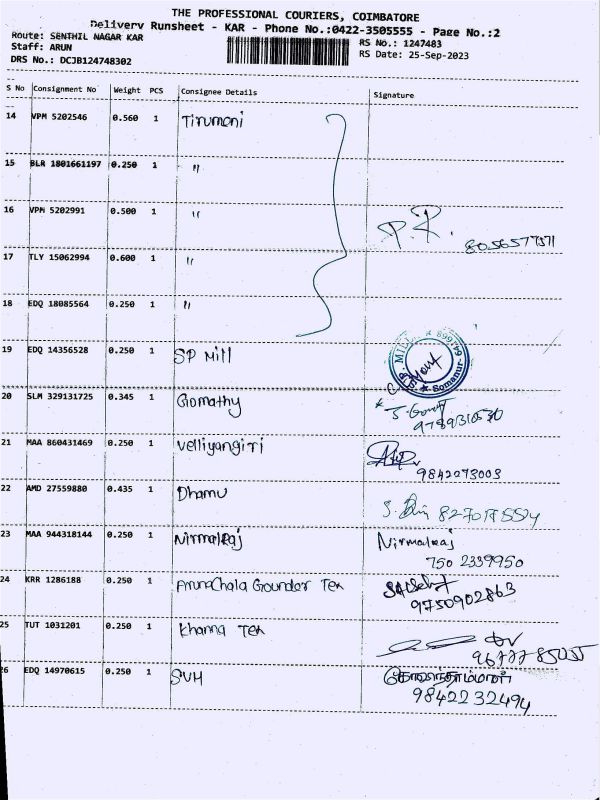 THE PROFESSIONAL COURIERS, COIMBATORE
Delivery Runsheet - KAR - Phone No.:0422-3505555 - Page No.:2
Route: SENTHIL NAGAR KAR
RS No.: 1247483
Staff: ARUN
RS Date: 25-Sep-2023
DRS No.: DCJB124748302
S No Consignment No Weight PCS Consignee Details Signature
14 VPM 5202546 0.560 1 Tirumoni
15 BLR 1801661197 0.250 1 "
16 VPM 5202991 0.500 1 "
P.R.
8056577371
17 TLY 15062994 0.600 1 "
18 EDQ 18085564 0.250 1 "
19 EDQ 14356528 0.250 1 SP Mill
S.P. MILL ★ 641668 ★ Somanur
20 SLM 329131725 0.345 1 Gomathy
21 MAA 860431469 0.250 1 Velliyangiri
9842273003
22 AMD 27559880 0.435 1 Dhamu
23 MAA 944318144 0.250 1 Nirmalraj
Nirmalraj
750 2339950
24 KRR 1286188 0.250 1 ArunaChala Gounder Tex
9750902863
25 TUT 1031201 0.250 1 Khanna Tex
96777 85055
26 EDQ 14970615 0.250 1 SVM
98422 32494